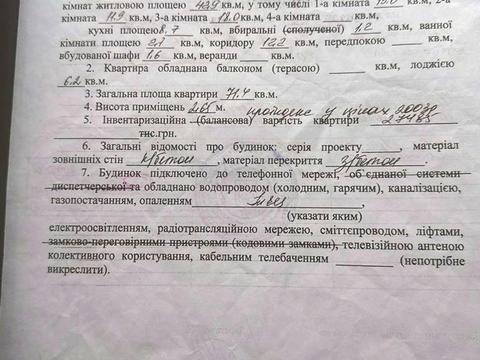 кімнат житловою площею 43,9 кв.м, у тому числі 1-а кімната кв.м, 2-а
кімната 11.9 кв.м, 3-а кімната 18.0 кв.м, 4-а кімната кв.м,
кухні площею 8,7 кв.м, вбиральні (сполученої) 1.2 кв.м, ванної
кімнати площею 2.7 кв.м, коридору 12.2 кв.м, передпокою кв.м,
вбудованої шафи 1.6 кв.м, веранди кв.м.
2. Квартира обладнана балконом (терасою) кв.м, лоджією
6.2 кв.м.
3. Загальна площа квартири 71.4 кв.м.
4. Висота приміщень 2.65 м. у цінах 2003р
5. Інвентаризаційна (балансова) вартість квартири 27485
тис.грн.
6. Загальні відомості про будинок: серія проекту , матеріал
зовнішніх стін , матеріал перекриття з/бетон
7. Будинок підключено до телефонної мережі, об'єднаної системи
диспетчерської та обладнано водопроводом (холодним, гарячим), каналізацією,
газопостачанням, опаленням
(указати яким)
електроосвітленням, радіотрансляційною мережею, сміттєпроводом, ліфтами,
замково-переговірними пристроями (кодовими замками), телевізійною антеною
колективного користування, кабельним телебаченням (непотрібне
викреслити).